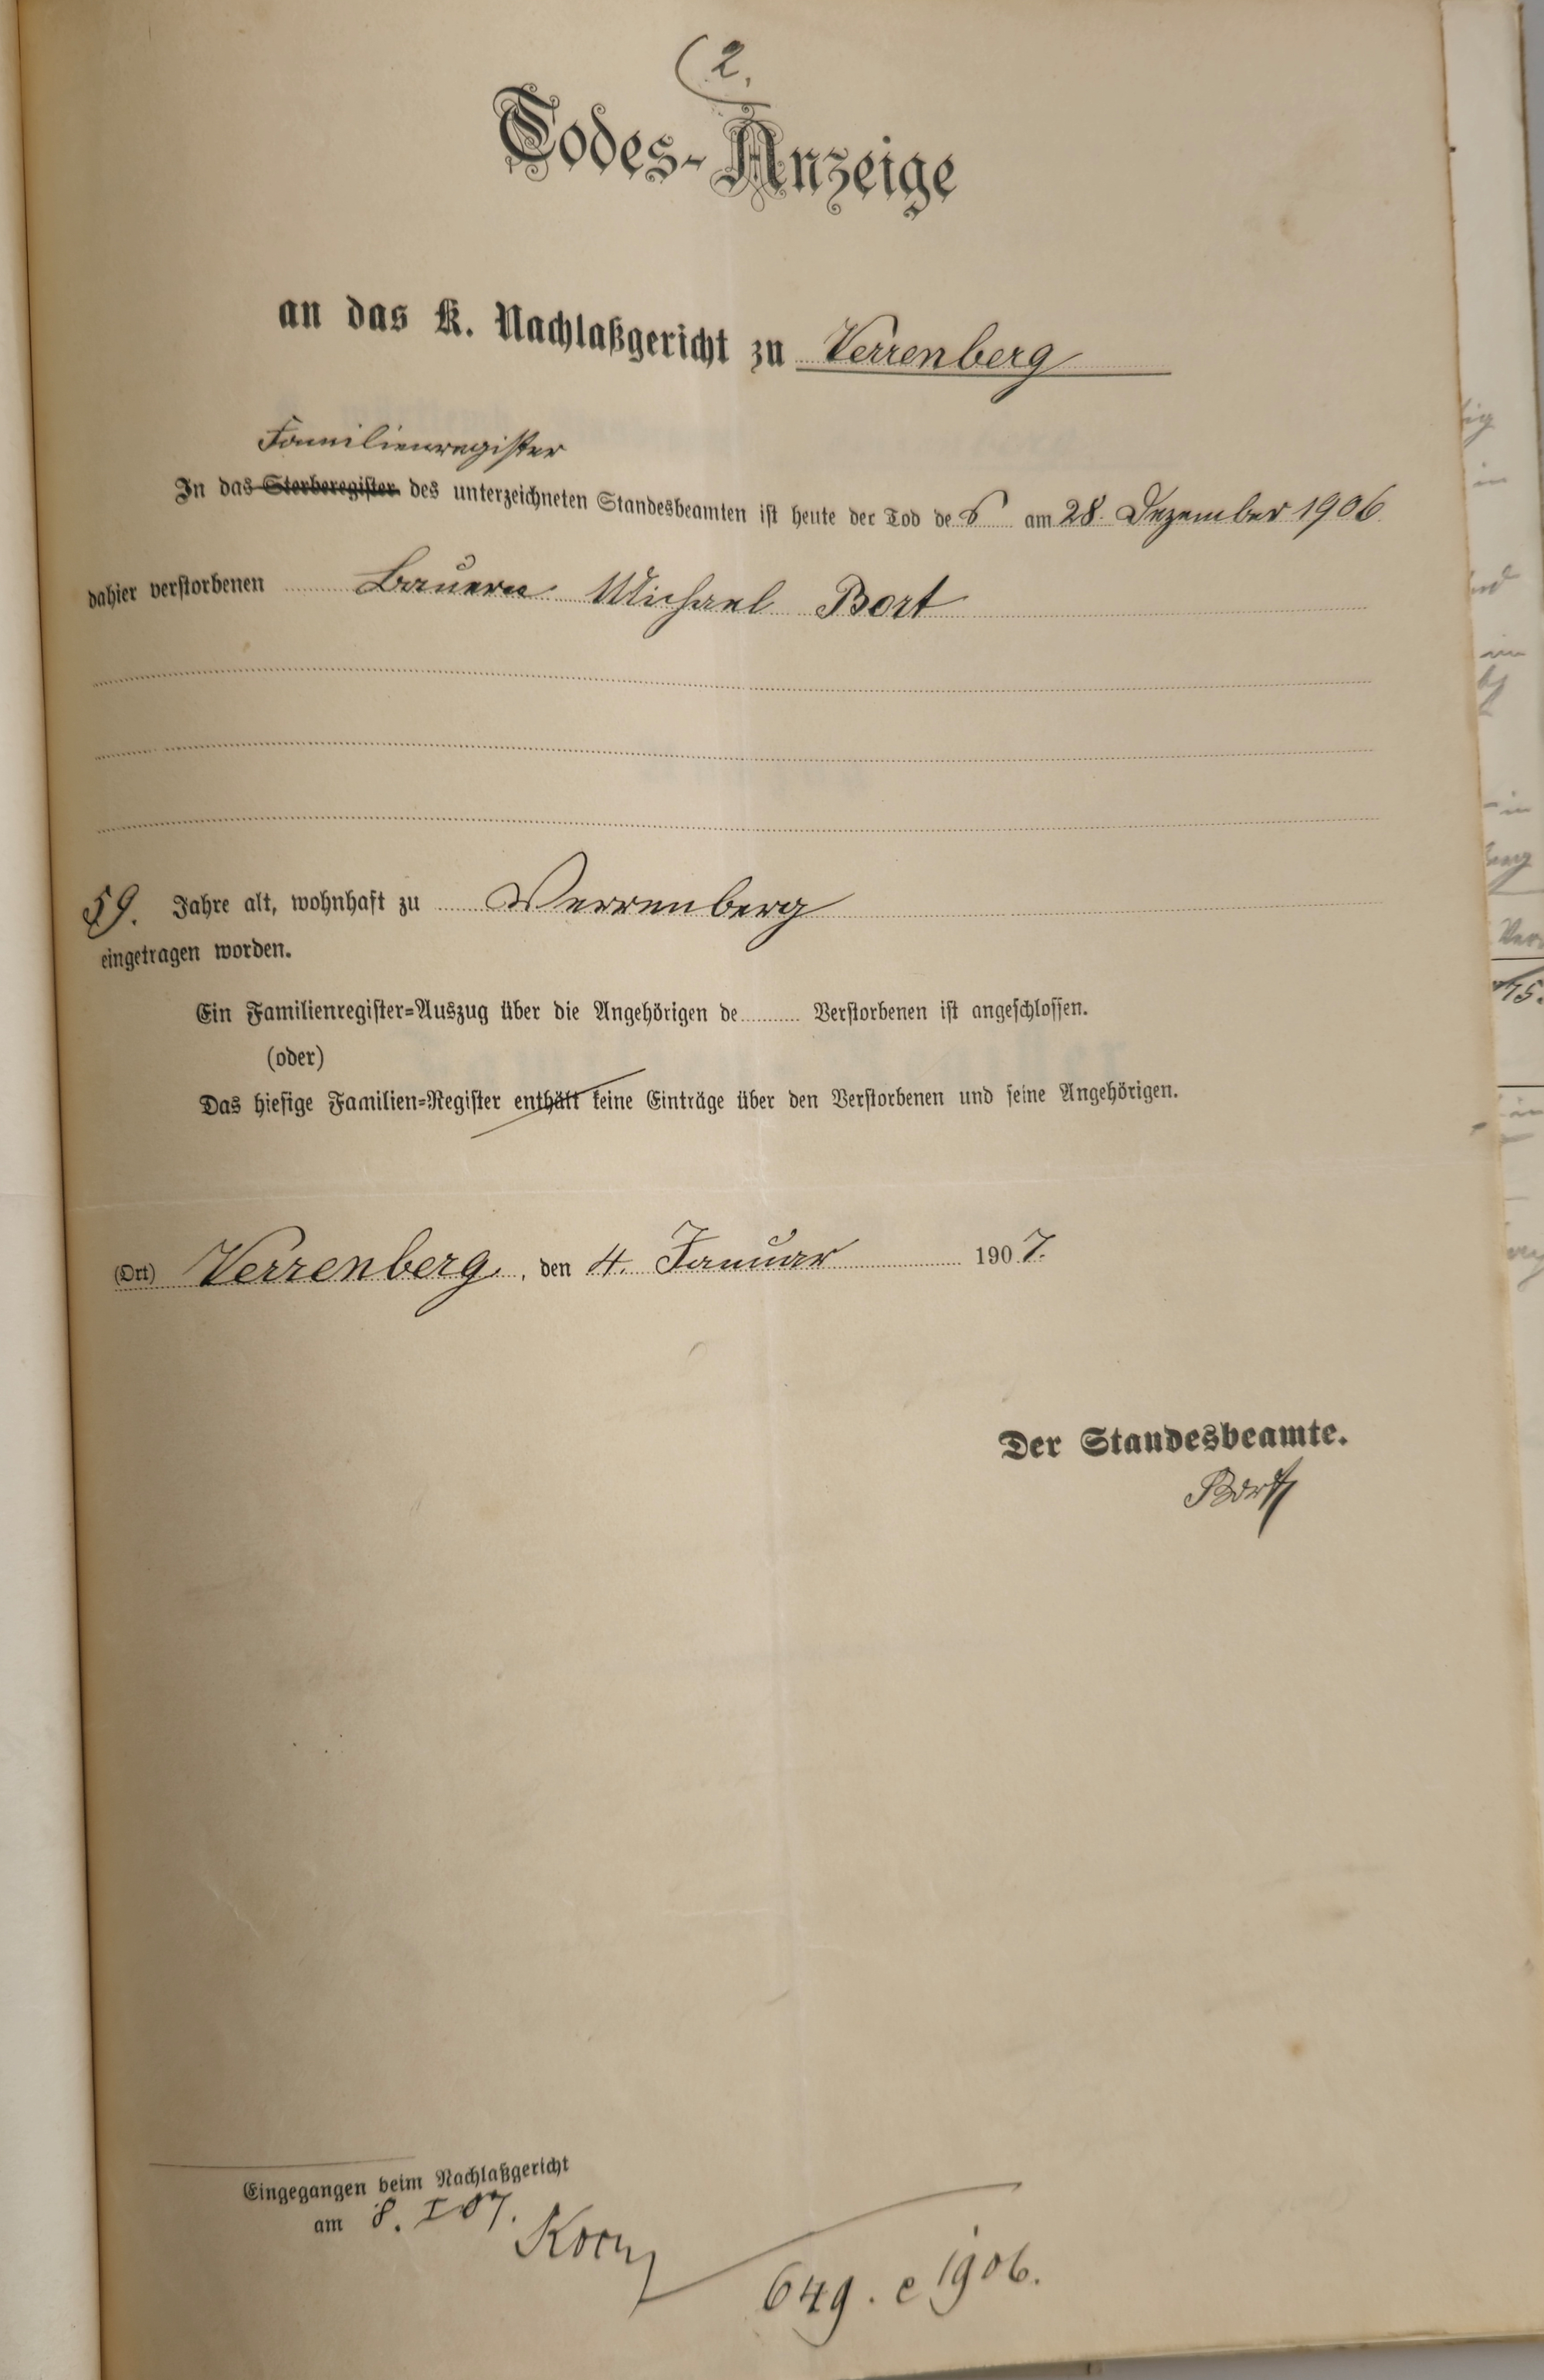 (2.
Todes-Anzeige
an das K. Nachlaßgericht zu Verrenberg
Familienregister
In das Sterberegister des unterzeichneten Standesbeamten ist heute der Tod des am 28. Dezember 1906
dahier verstorbenen Bauern Michael Bort
59. Jahre alt, wohnhaft zu Verrenberg
eingetragen worden.
Ein Familienregister-Auszug über die Angehörigen de Verstorbenen ist angeschlossen.
(oder)
Das hiesige Familien-Register enthält keine Einträge über den Verstorbenen und seine Angehörigen.
(Ort) Verrenberg, den 4. Januar 1907.
Der Standesbeamte.
Bort
Eingegangen beim Nachlaßgericht
am 8. I 07.
649. e 1906.